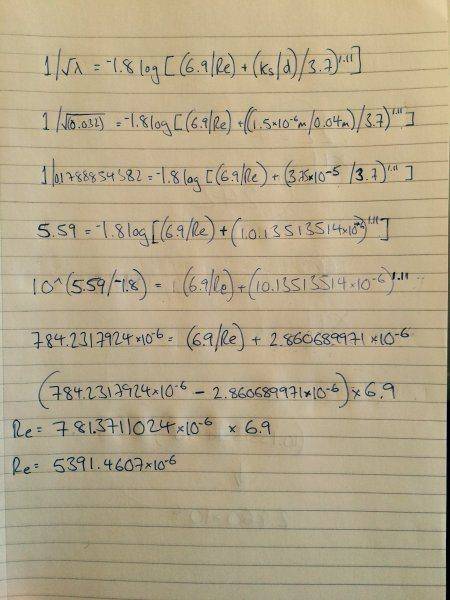 1/√λ = -1.8 log [(6.9/Re) + (ks/d)/3.7)^1.11]
1/√(0.032) = -1.8 log [(6.9/Re) + ((1.5×10^-6 m/0.04m)/3.7)^1.11]
1/0.1788854382 = -1.8 log [(6.9/Re) + (3.75×10^-5 /3.7)^1.11]
5.59 = -1.8 log [(6.9/Re) + (10.13513514×10^-6)^1.11]
10^(5.59/-1.8) = (6.9/Re) + (10.13513514×10^-6)^1.11
784.2317924×10^-6 = (6.9/Re) + 2.860689971×10^-6
(784.2317924×10^-6 - 2.860689971×10^-6) × 6.9
Re = 781.3711024×10^-6 × 6.9
Re = 5391.4607×10^-6